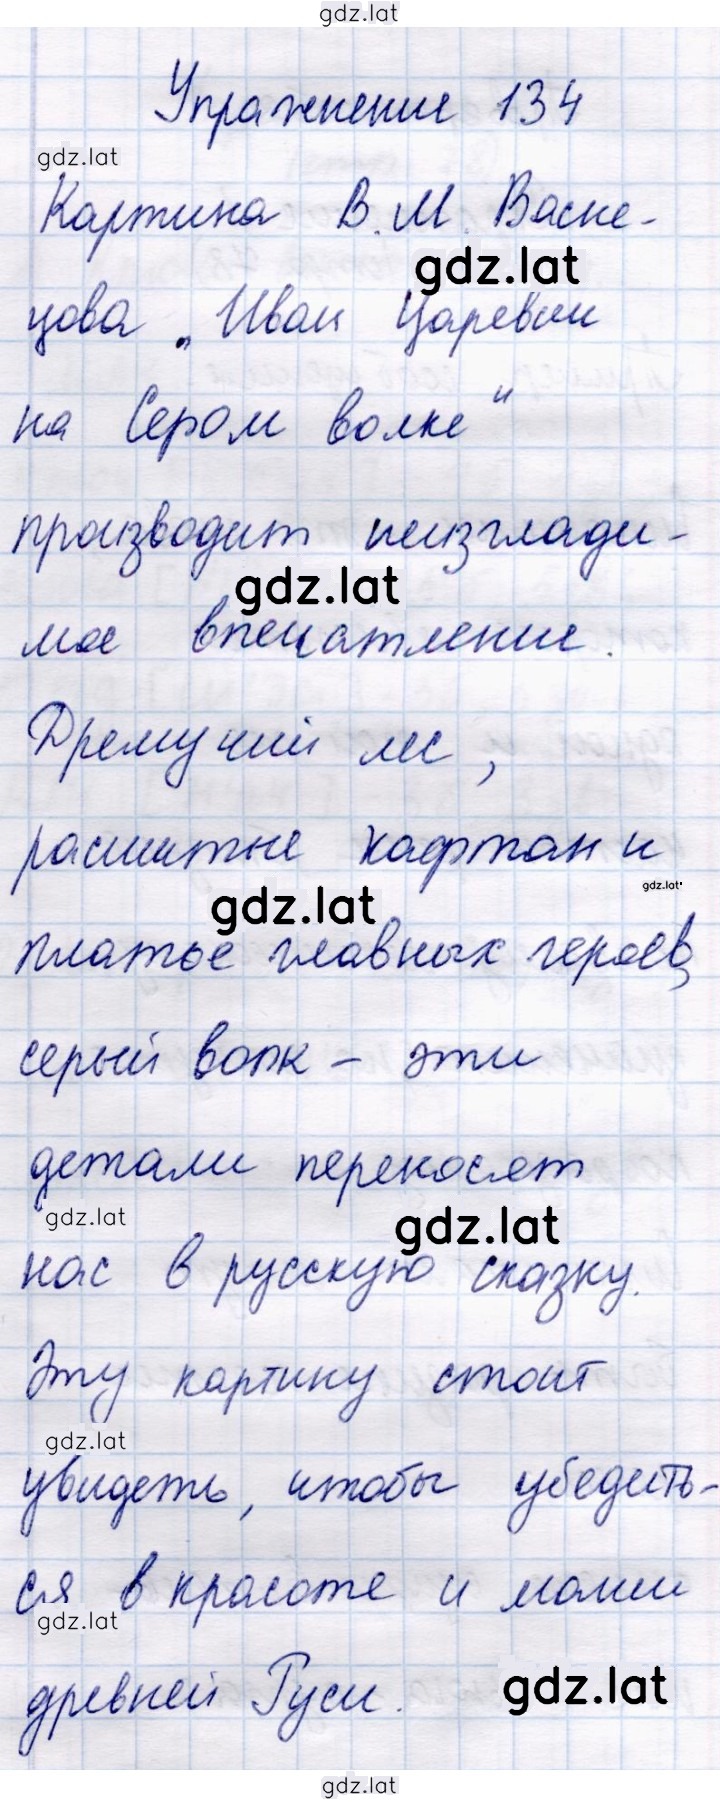 gdz.lat
Упражнение 134
gdz.lat
Картина В.М. Васне-
gdz.lat
цова „Иван Царевич
на Сером волке"
производит неизглади-
gdz.lat
мое впечатление.
Дремучий лес,
расшитые кафтан и
gdz.lat
gdz.lat
платье главных героев,
серый волк – эти
детали переносят
gdz.lat
gdz.lat
нас в русскую сказку.
Эту картину стоит
gdz.lat
увидеть, чтобы убедить-
ся в красоте и мощи
gdz.lat
древней Руси.
gdz.lat
gdz.lat